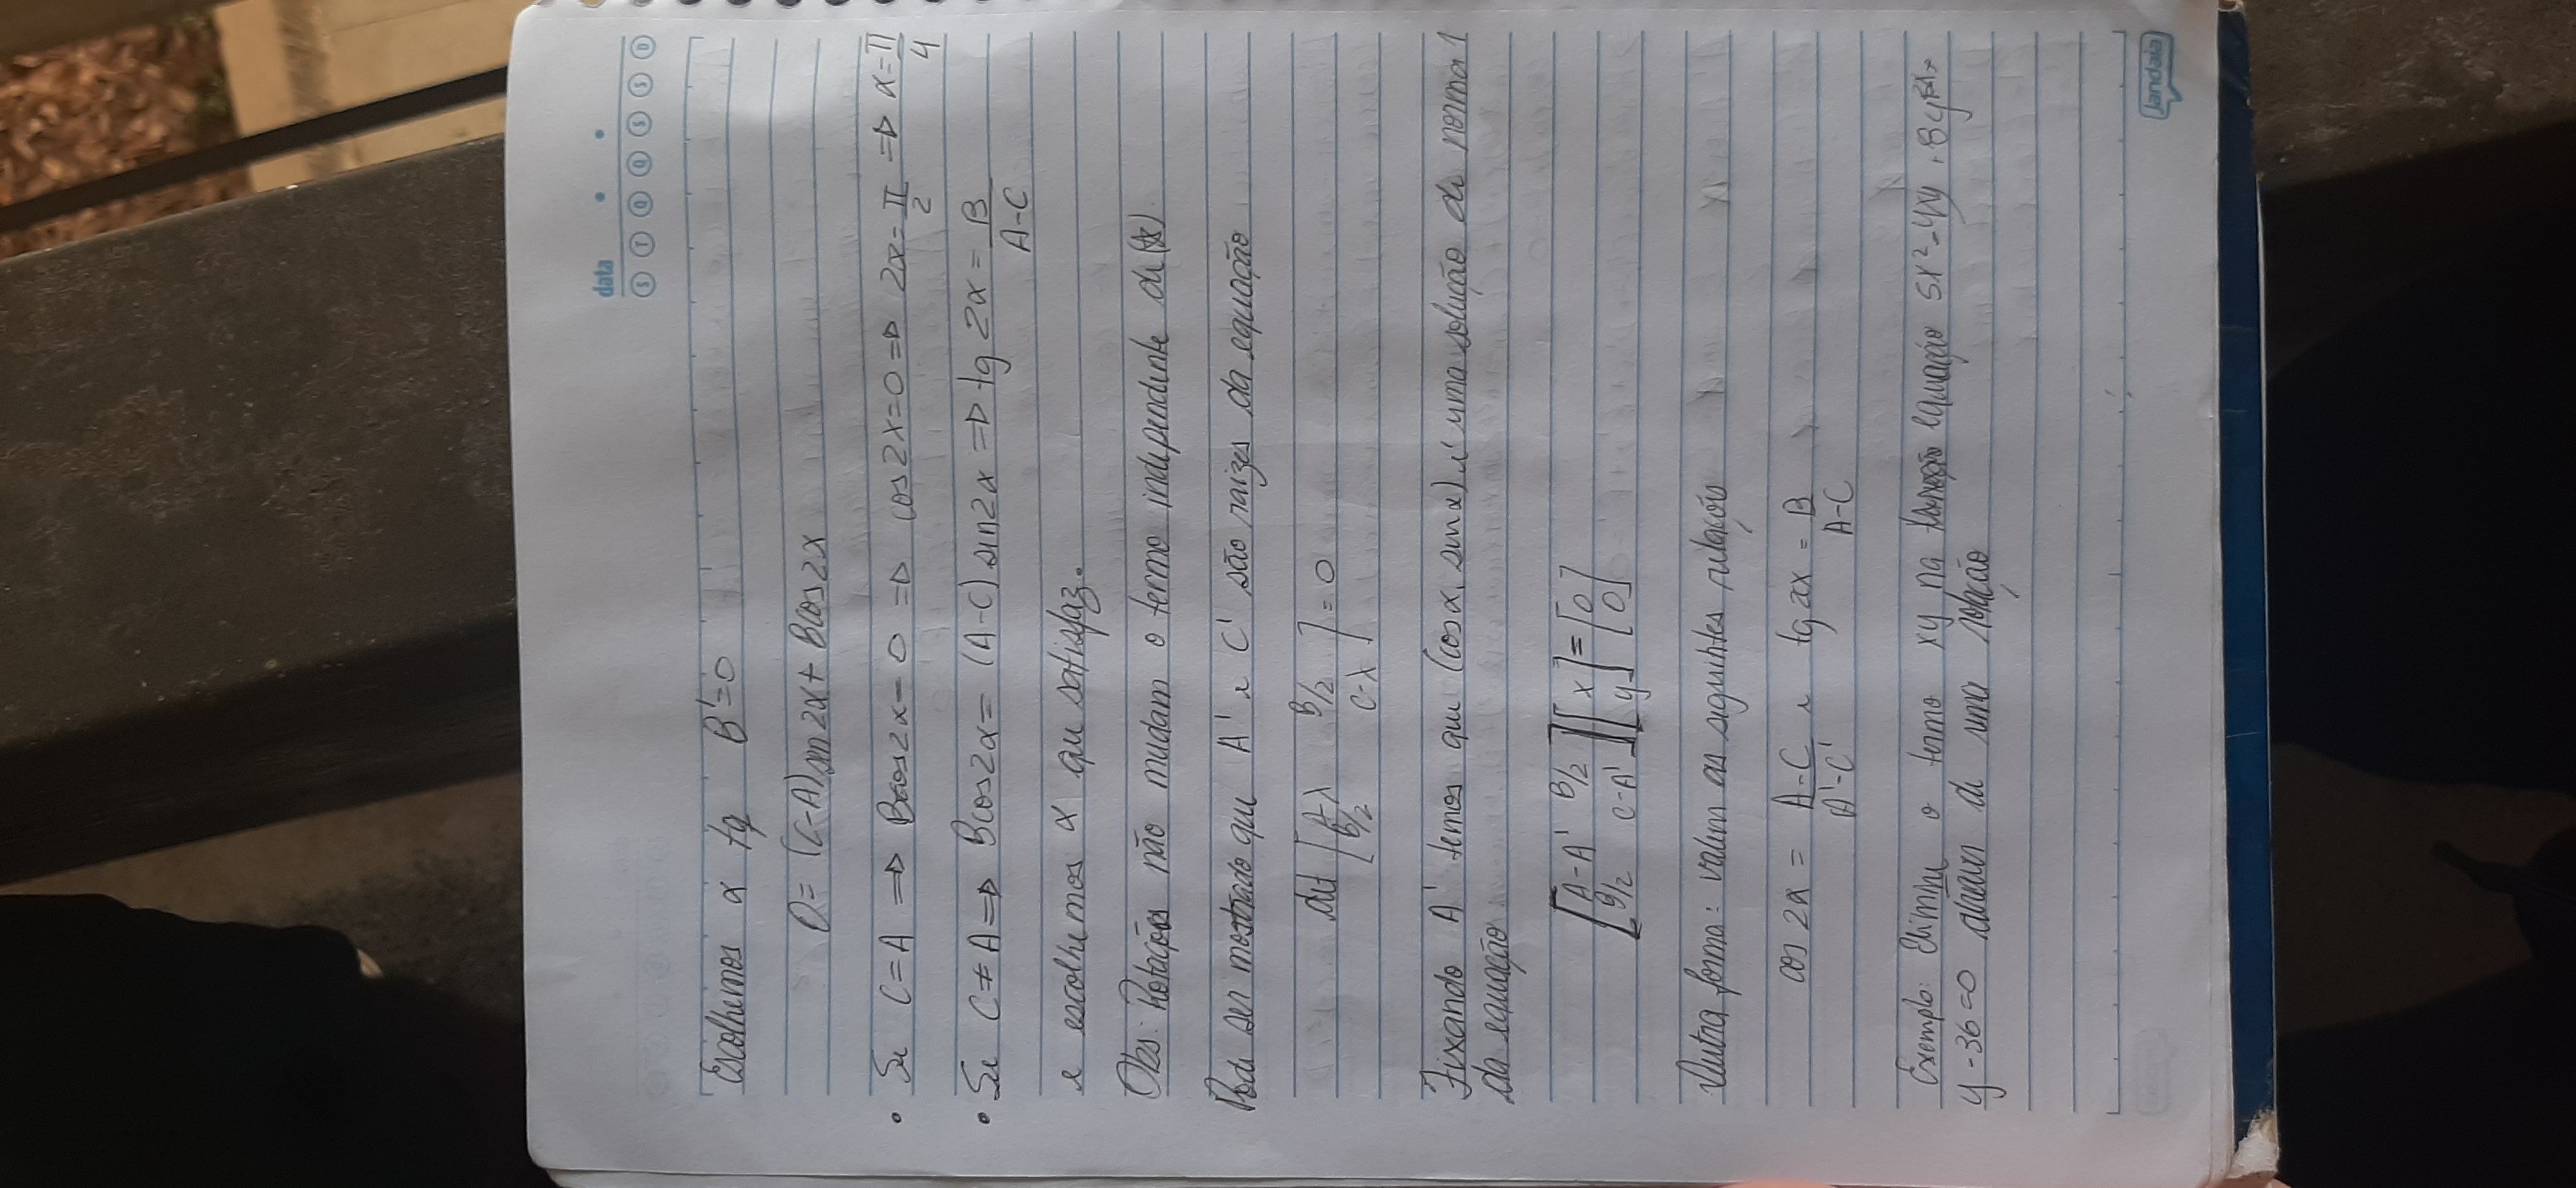 data
S T Q Q S S D
Escolhemos α tq B'=0
0= (C-A) sin 2α + B cos 2α
• Se C=A => B cos 2α = 0 => cos 2α = 0 => 2α = π/2 => α = π/4
• Se C ≠ A => B cos 2α = (A-C) sin 2α => tg 2α = B/(A-C)
e escolhemos α que satisfaz.
Obs: Rotações não mudam o termo independente de (x)
Pode ser mostrado que A' e C' são raizes da equação
det [A-λ B/2] = 0
[B/2 C-λ]
Fixando A' temos que (cos α, sin α) é uma solução de norma 1
da equação
[A-A' B/2] [x] = [0]
[B/2 C-A'] [y] [0]
Outra forma: valem as siguintes relações
cos 2α = (A-C)/(A'-C') e tg 2α = B/(A-C)
Exemplo: Elimine o termo xy na equação 5x² - 4xy + 8y²
y - 36 = 0 através de uma rotação
jandaia